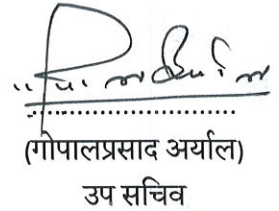 (गोपालप्रसाद अर्याल)
उप सचिव